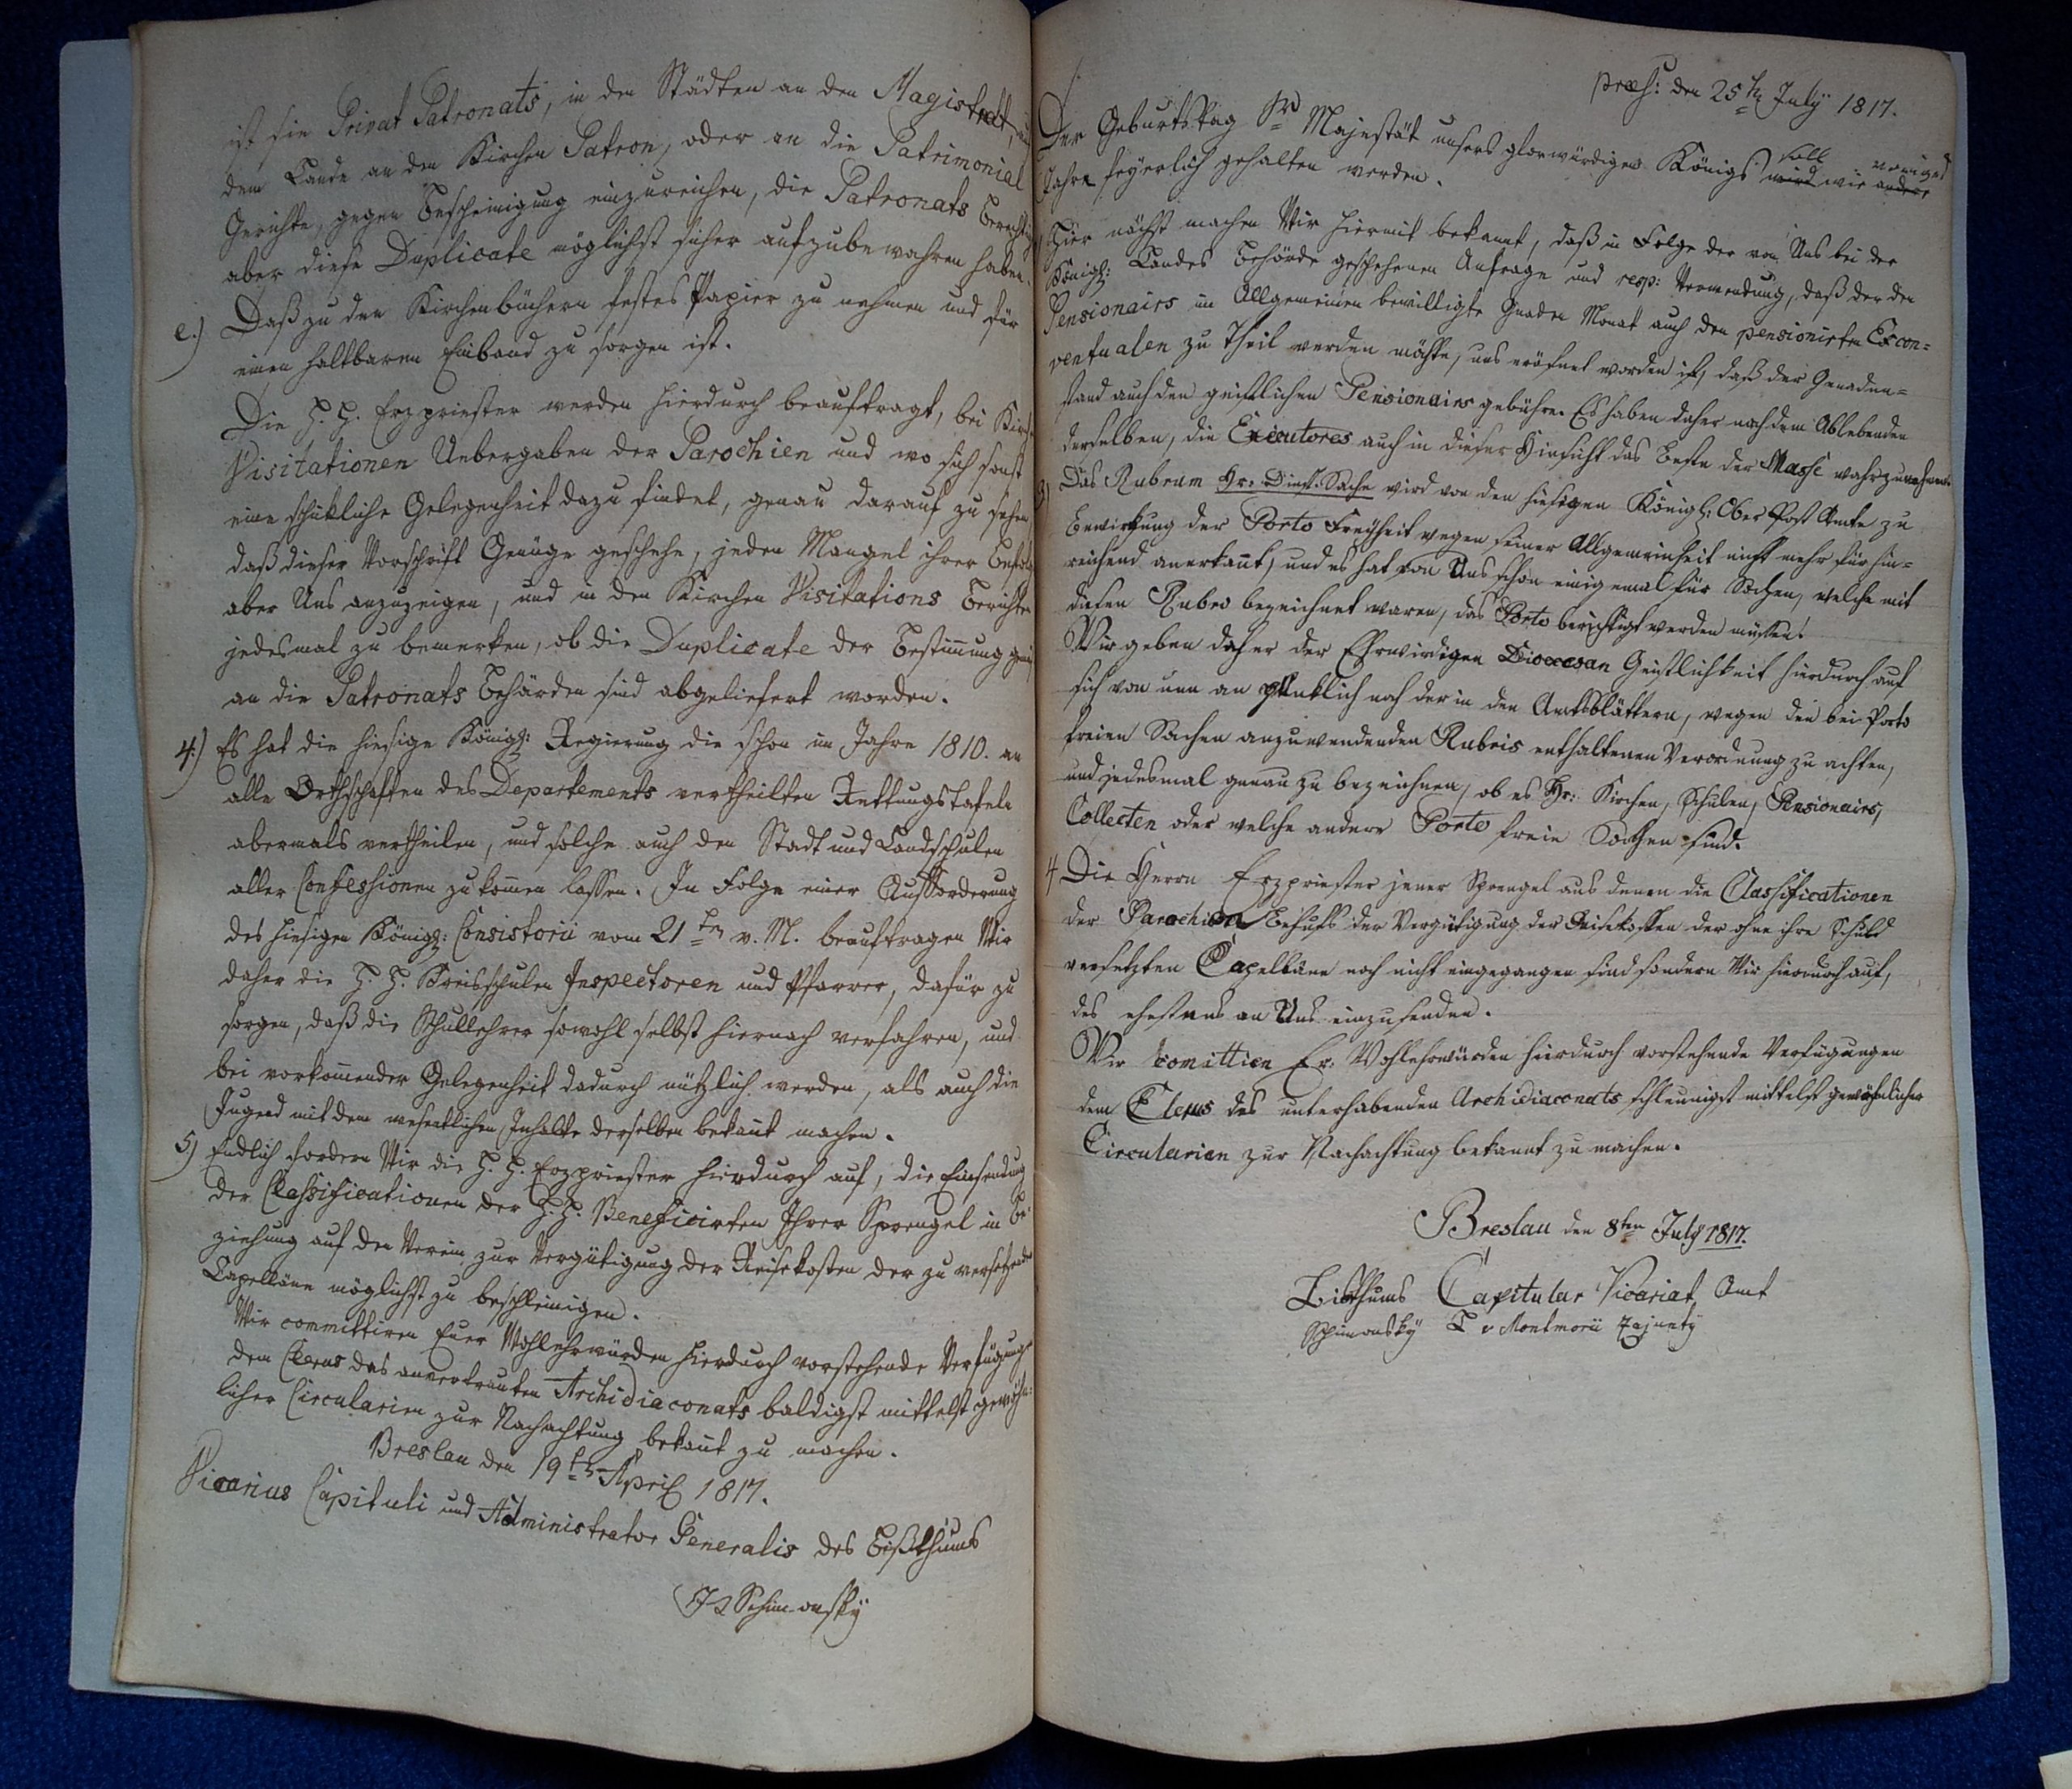 ist sie Privat Patronats, in den Städten an den Magistrat, auf
dem Lande an den Kirchen Patron, oder an die Patrimonial
Gerichte, gegen Bescheinigung einzureichen, die Patronats
aber diese Duplicate möglichst sicher aufzubewahren haben.
e.) Daß zu den Kirchenbüchern festes Papier zu nehmen und für
einen haltbaren Einband zu sorgen ist.
Die H. H. Erzpriester werden hierdurch beauftragt, bei
Visitationen Uebergaben der Parochien und wo sich sonst
eine schickliche Gelegenheit dazu findet, genau darauf zu sehen
daß dieser Vorschrift Genüge geschehe, jeden Mangel ihrer
aber Uns anzuzeigen, und in den Kirchen Visitations Berichten
jedesmal zu bemerken, ob die Duplicate der Bestimung
an die Patronats Behörden sind abgeliefert worden.
4.) Es hat die hiesige Königl: Regierung die schon im Jahre 1810. an
alle Orthschaften des Departements vertheilten Rettungstafeln
abermals vertheilen, und solche auch den Stadt und Landschulen
aller Confessionen zukomen lassen. In Folge einer Aufforderung
des hiesigen Königl: Consistorii vom 21ten v. M. beauftragen Wir
daher die H. H. Kreisschulen Inspectoren und Pfarrer, dafür zu
sorgen, daß die Schullehrer sowohl selbst hiernach verfahren, und
bei vorkomender Gelegenheit dadurch nützlich werden, als auch die
Jugend mit dem wesentlichen Inhalte derselben bekant machen.
5) Endlich fordern Wir die H. H. Erzpriester hierdurch auf, die Einsendung
der Classificationen der H. H. Beneficirten Ihrer Sprengel in Be¬
ziehung auf den Verein zur Vergütigung der Reisekosten der zu versetzenden
Capelläne möglichst zu beschleinigen.
Wir committiren Euer Wohlehrwürden hierdurch vorstehende Verfügungen
dem Clerus des anvertrauten Archidiaconats baldigst mittelst gewöhn¬
licher Circularien zur Nachachtung bekant zu machen.
Breslau den 19ten April 1817.
Vicarius Capituli und Administrator Generalis des Bißthums
Schimonsky
præs: den 25tn July 1817.
Der Geburtstag Sr Majestät unsers glorwürdigen Königs soll wird wie voriges andere
Jahre feyerlich gehalten werden.
Hier nächst machen Wir hiermit bekannt, daß in Folge der von Uns bei der
Königl: Landes Behörde geschehenen Anfrage und resp: Verwendung, daß der den
Pensionairs im Allgemeinen bewilligte Gnaden Monat auch den pensionirten Excon=
ventualen zu Theil werden möchte, uns eröfnet worden ist, daß der Genaden=
auch den geistlichen Pensionairs gebühre. Es haben daher nach dem Ablebenden
derselben, die Executores auch in dieser Hinsicht das Beste der Masse wahrzunehmen.
3) Das Rubrum Hr: Dinst. Sache wird von den hiesigen Königl: Ober Post Amte zu
Bewirkung der Porto Freyheit wegen seiner Allgemeinheit nicht mehr für hin=
reichend anerkant, und es hat von Uns schon einigemal für Sachen, welche mit
diesen Rubro bezeichnet waren, das Porto berichtigt werden müssen.
Wir geben daher der Ehrwirdigen Dioecesan Geistlichkeit hierdurch auf
sich von nun an pünktlich nach der in den Amtsblättern, wegen den bei Porto
freien Sachen anzuwendenden Rubris enthaltenen Verordnung zu achten,
und jedesmal genau zu bezeichnen, ob es Hr: Kirchen, Schulen, Pensionairs,
Collecten oder welche andere Porto freie Sachen sind.
4 Die Herrn Erzpriester jener Sprengel aus denen die Classificationen
der Parochien Behufs der Vergütigung der Reisekosten der ohne ihre Schuld
versetzten Capelläne noch nicht eingegangen sind fordern Wir hierdurch auf,
des ehestens an Uns einzusenden.
Wir comittien Er. Wohlehrwürden hierdurch vorstehende Verfügungen
dem Clerus des unterhabenden Archidiaconats schleunigst mittelst gewöhnlicher
Circularien zur Nachachtung bekannt zu machen.
Breslau den 8ten July 1817.
Bisthums Capitular Vicariat Amt
Schimonsky v Montmorii